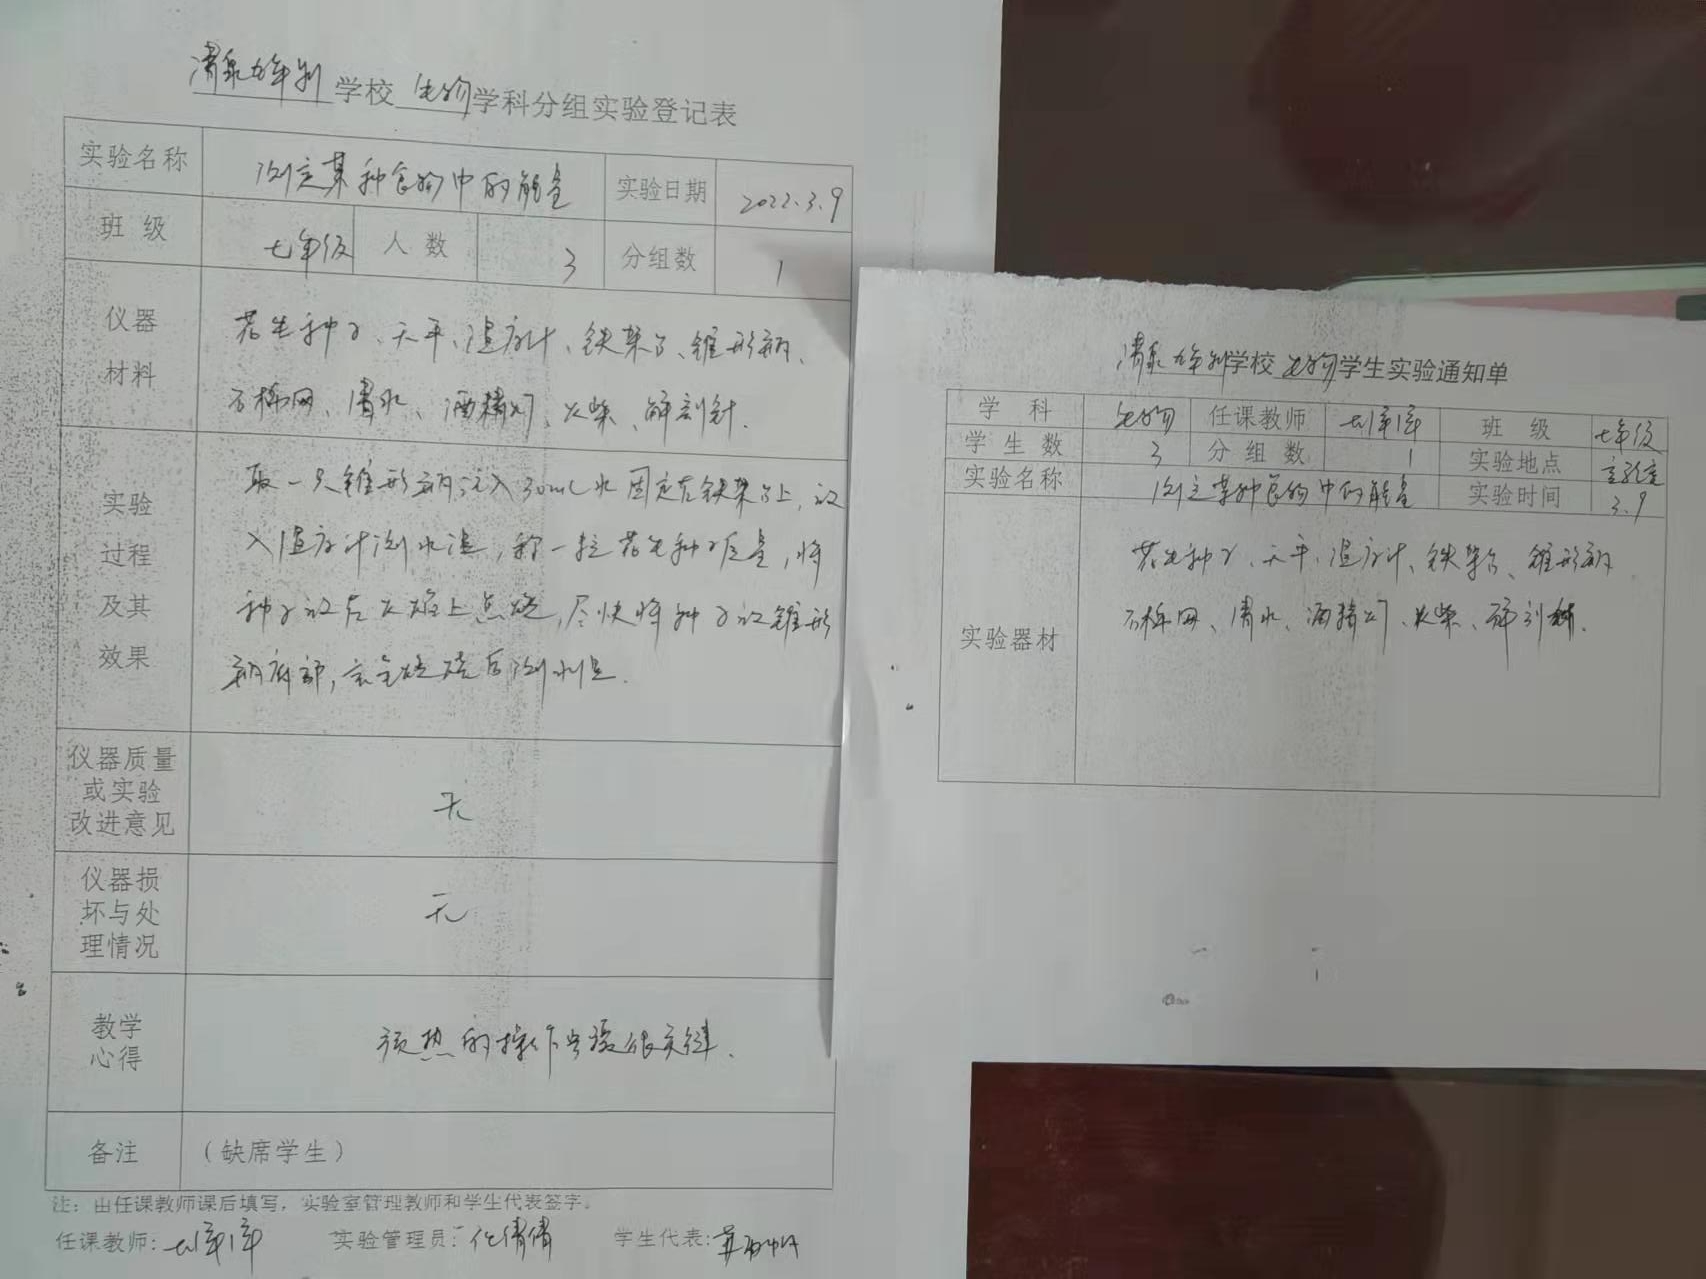 清泉九年制学校生物学科分组实验登记表
实验名称 测定某种食物中的能量 实验日期 2022.3.9
班级 七年级 人数 3 分组数 1
仪器材料
花生种子、天平、温度计、铁架台、锥形瓶、
石棉网、清水、酒精灯、火柴、解剖针.
实验过程及其效果
取一只锥形瓶,注入30mL水固定在铁架台上,放
入温度计测水温,称一粒花生种子质量,将
种子放在火焰上点燃,尽快将种子放锥形
瓶底部,完全燃烧后测水温.
仪器质量或实验改进意见 无
仪器损坏与处理情况 无
教学心得 预热的操作步骤很关键.
备注 (缺席学生)
注:由任课教师课后填写,实验室管理教师和学生代表签字。
任课教师: 实验管理员: 倩倩 学生代表:
清泉九年制学校生物学生实验通知单
学科 生物 任课教师 班级 七年级
学生数 3 分组数 1 实验地点 实验室
实验名称 测定某种食物中的能量 实验时间 3.9
实验器材
花生种子、天平、温度计、铁架台、锥形瓶
石棉网、清水、酒精灯、火柴、解剖针.